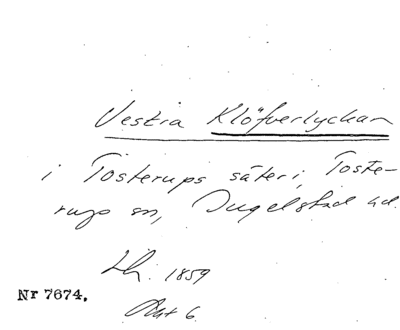 Vestra Klöfverlyckan
i Tosterups säteri, Toste-
rups sn, Ingelstad hd.
Lh. 1859
Nr 7674.
Akt 6